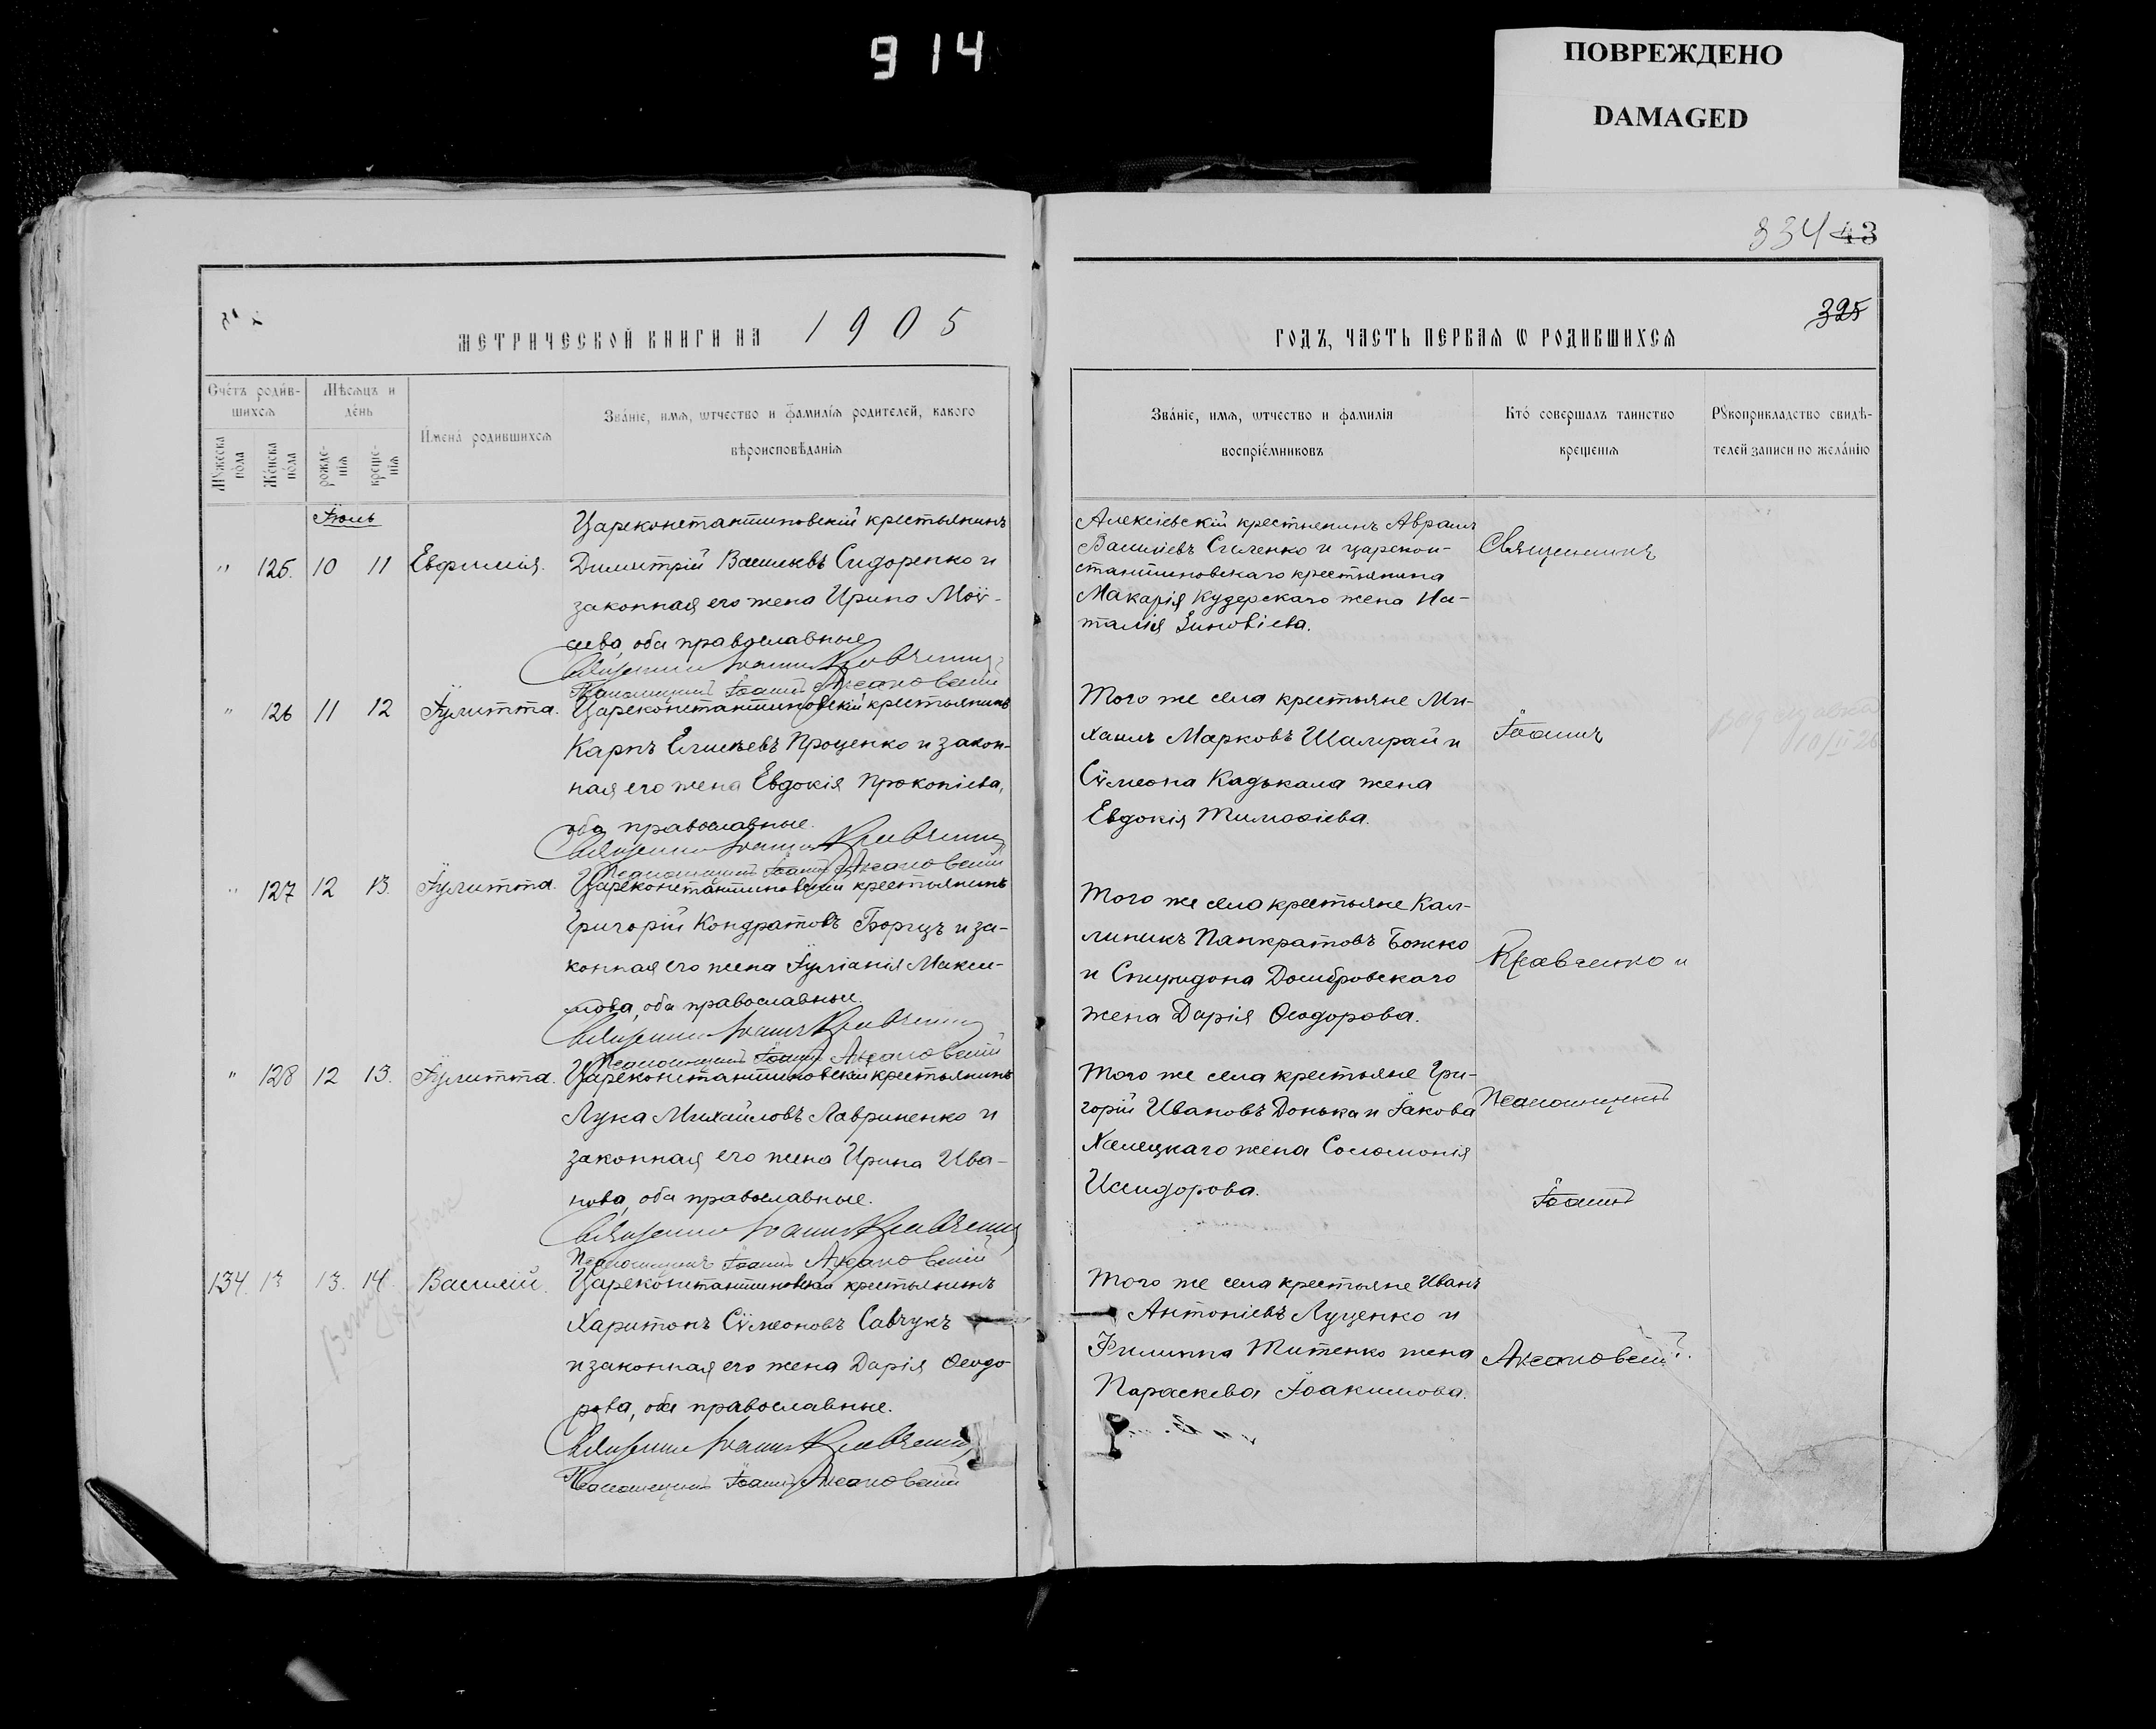 9 14
ПОВРЕЖДЕНО
DAMAGED
334 43
325
МЕТРИЧЕСКОЙ КНИГИ НА 1905
ГОДЪ, ЧАСТЬ ПЕРВАЯ Ѡ РОДИВШИХСѦ
Сче́тъ роди́в-
шихсѧ
Мѣ́сѧцъ и
де́нь
Мꙋжеска
по́ла
Же́нска
по́ла
рожде-
нїѧ
креще-
нїѧ
Имена̀ родившихсѧ
Зва́нїе, имѧ, ѿтчество и фамилїѧ родителей, какого
вѣроисповѣданїѧ
Зва́нїе, имѧ, ѿтчество и фамилїѧ
воспрїе́мниковъ
Кто̀ совершалъ таинство
крещенїѧ
Рꙋкоприкладство свидѣ-
телей записи по жела́нїю
Іюль
" 125. 10 11 Евфимія.
Цареконстантиновскій крестьянинъ
Димитрій Васильевъ Сидоренко и
законная его жена Ирина Моѵ-
сеева, оба православные
Священникъ Іоаннъ Кравченко
Псаломщикъ Іоаннъ Аксановскій
Алексіевскій крестьянинъ Аврамъ
Василіевъ Силенко и царекон-
стантиновскаго крестьянина
Макарія Кудерскаго жена На-
талія Зиновіева.
Священникъ
" 126 11 12 Іулитта.
Цареконстантиновскій крестьянинъ
Карпъ Елисѣевъ Проценко и закон-
ная его жена Евдокія Прокопіева,
оба православные.
Священникъ Іоаннъ Кравченко
Псаломщикъ Іоаннъ Аксановскій
Того же села крестьяне Ми-
хаилъ Марковъ Шамрай и
Сѵмеона Кадькала жена
Евдокія Тимоѳіева.
Іоаннъ
" 127 12 13. Іулитта.
Цареконстантиновскій крестьянинъ
Григорій Кондратовъ Борщъ и за-
конная его жена Іуліанія Макси-
мова, оба православные.
Священникъ Іоаннъ Кравченко
Псаломщикъ Іоаннъ Аксановскій
Того же села крестьяне Кал-
линикъ Панкратовъ Божко
и Спиридона Домбровскаго
жена Дарія Ѳеодорова.
Кравченко и
" 128 12 13. Іулитта.
Цареконстантиновскій крестьянинъ
Лука Михайловъ Лавриненко и
законная его жена Ирина Ива-
нова, оба православные.
Священникъ Іоаннъ Кравченко
Псаломщикъ Іоаннъ Аксановскій
Того же села крестьяне Гри-
горій Ивановъ Донька и Іакова
Хелецкаго жена Соломонія
Исидорова.
Псаломщикъ
Іоаннъ
134. 13. 14. Василій.
Цареконстантиновскій крестьянинъ
Харитонъ Сѵмеоновъ Савчукъ
и законная его жена Дарія Ѳеодо-
рова, оба православные.
Священникъ Іоаннъ Кравченко
Псаломщикъ Іоаннъ Аксановскій
Того же села крестьяне Иванъ
Антоніевъ Луценко и
Филиппа Титенко жена
Параскева Іоакимова.
Аксановскій.